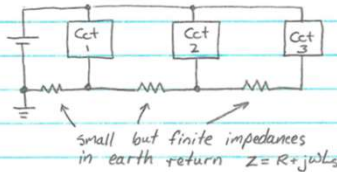 Cct
1
Cct
2
Cct
3
small but finite impedances
in earth return Z = R+jωLs